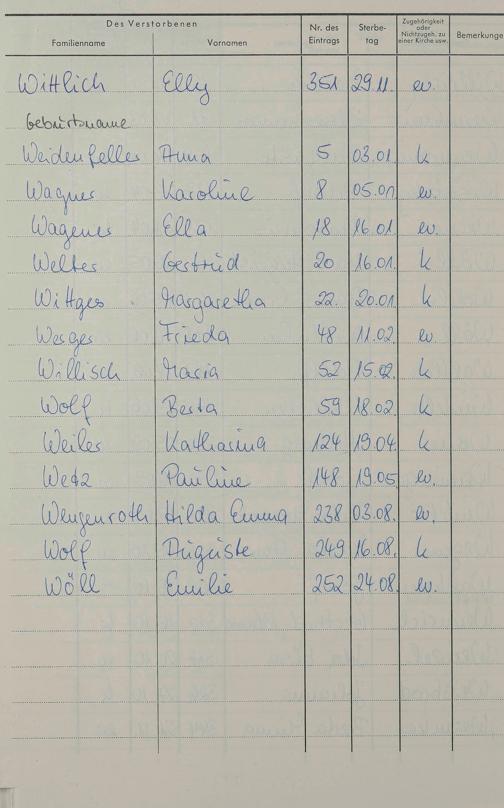 Des Verstorbenen
Familienname Vornamen Nr. des Eintrags Sterbe-tag Zugehörigkeit oder Nichtzugeh. zu einer Kirche usw. Bemerkunge
Wittlich Elly 351 29.11. ev.
Geburtsname
Weidenfeller Anna 5 03.01. k
Wagner Karoline 8 05.01. ev.
Wagener Ella 18 16.01. ev.
Welter Gertrud 20 16.01. k
Wittges Margaretha 22. 20.01. k
Werges Frieda 48 11.02. ev
Willisch Maria 52 15.02. k
Wolf Berta 59 18.02. k
Weiler Katharina 124 19.04. k
Wetz Pauline 148 19.05 ev.
Wengenroth Hilda Emma 238 03.08. ev.
Wolf Auguste 249 16.08. k
Wöll Emilie 252 24.08. ev.